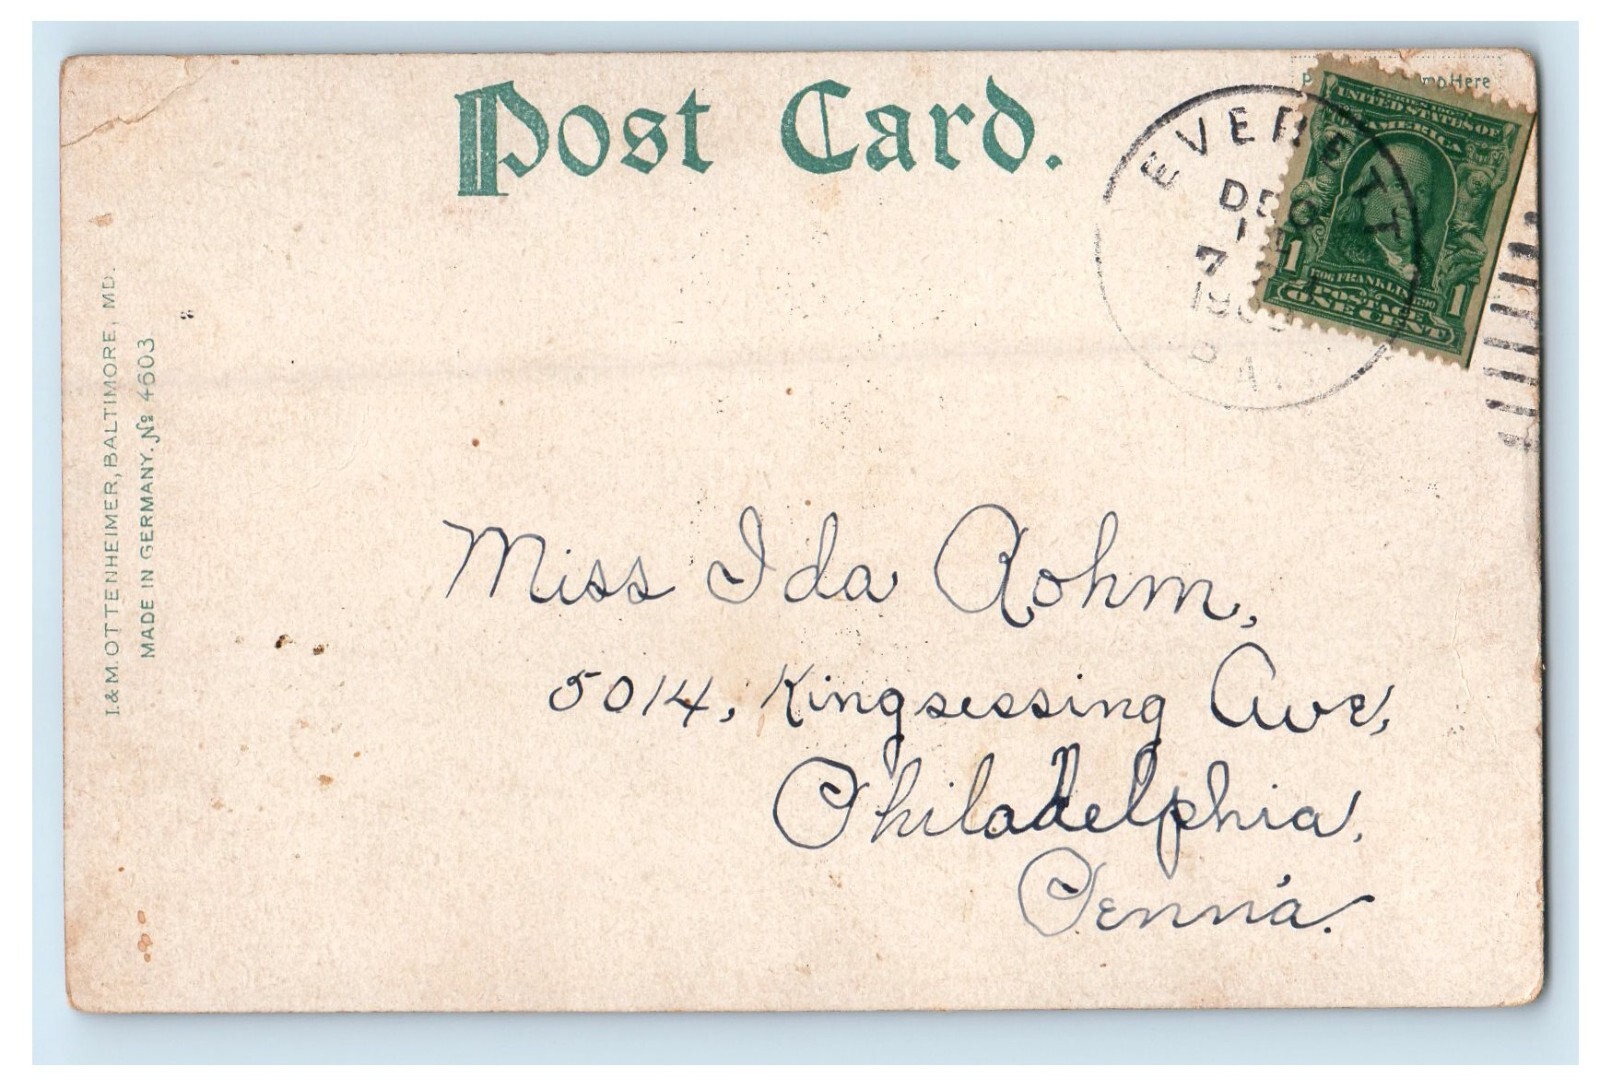 Post Card.
Here
EVERETT
DEC
7
PA.
SERIES 1902
UNITED STATES OF
AMERICA
1706 FRANKLIN 1790
POSTAGE
1 ONE CENT 1
I. & M. OTTENHEIMER, BALTIMORE, MD.
MADE IN GERMANY. № 4603
Miss Ida Rohm,
5014, Kingsessing Ave,
Philadelphia,
Penn'a.